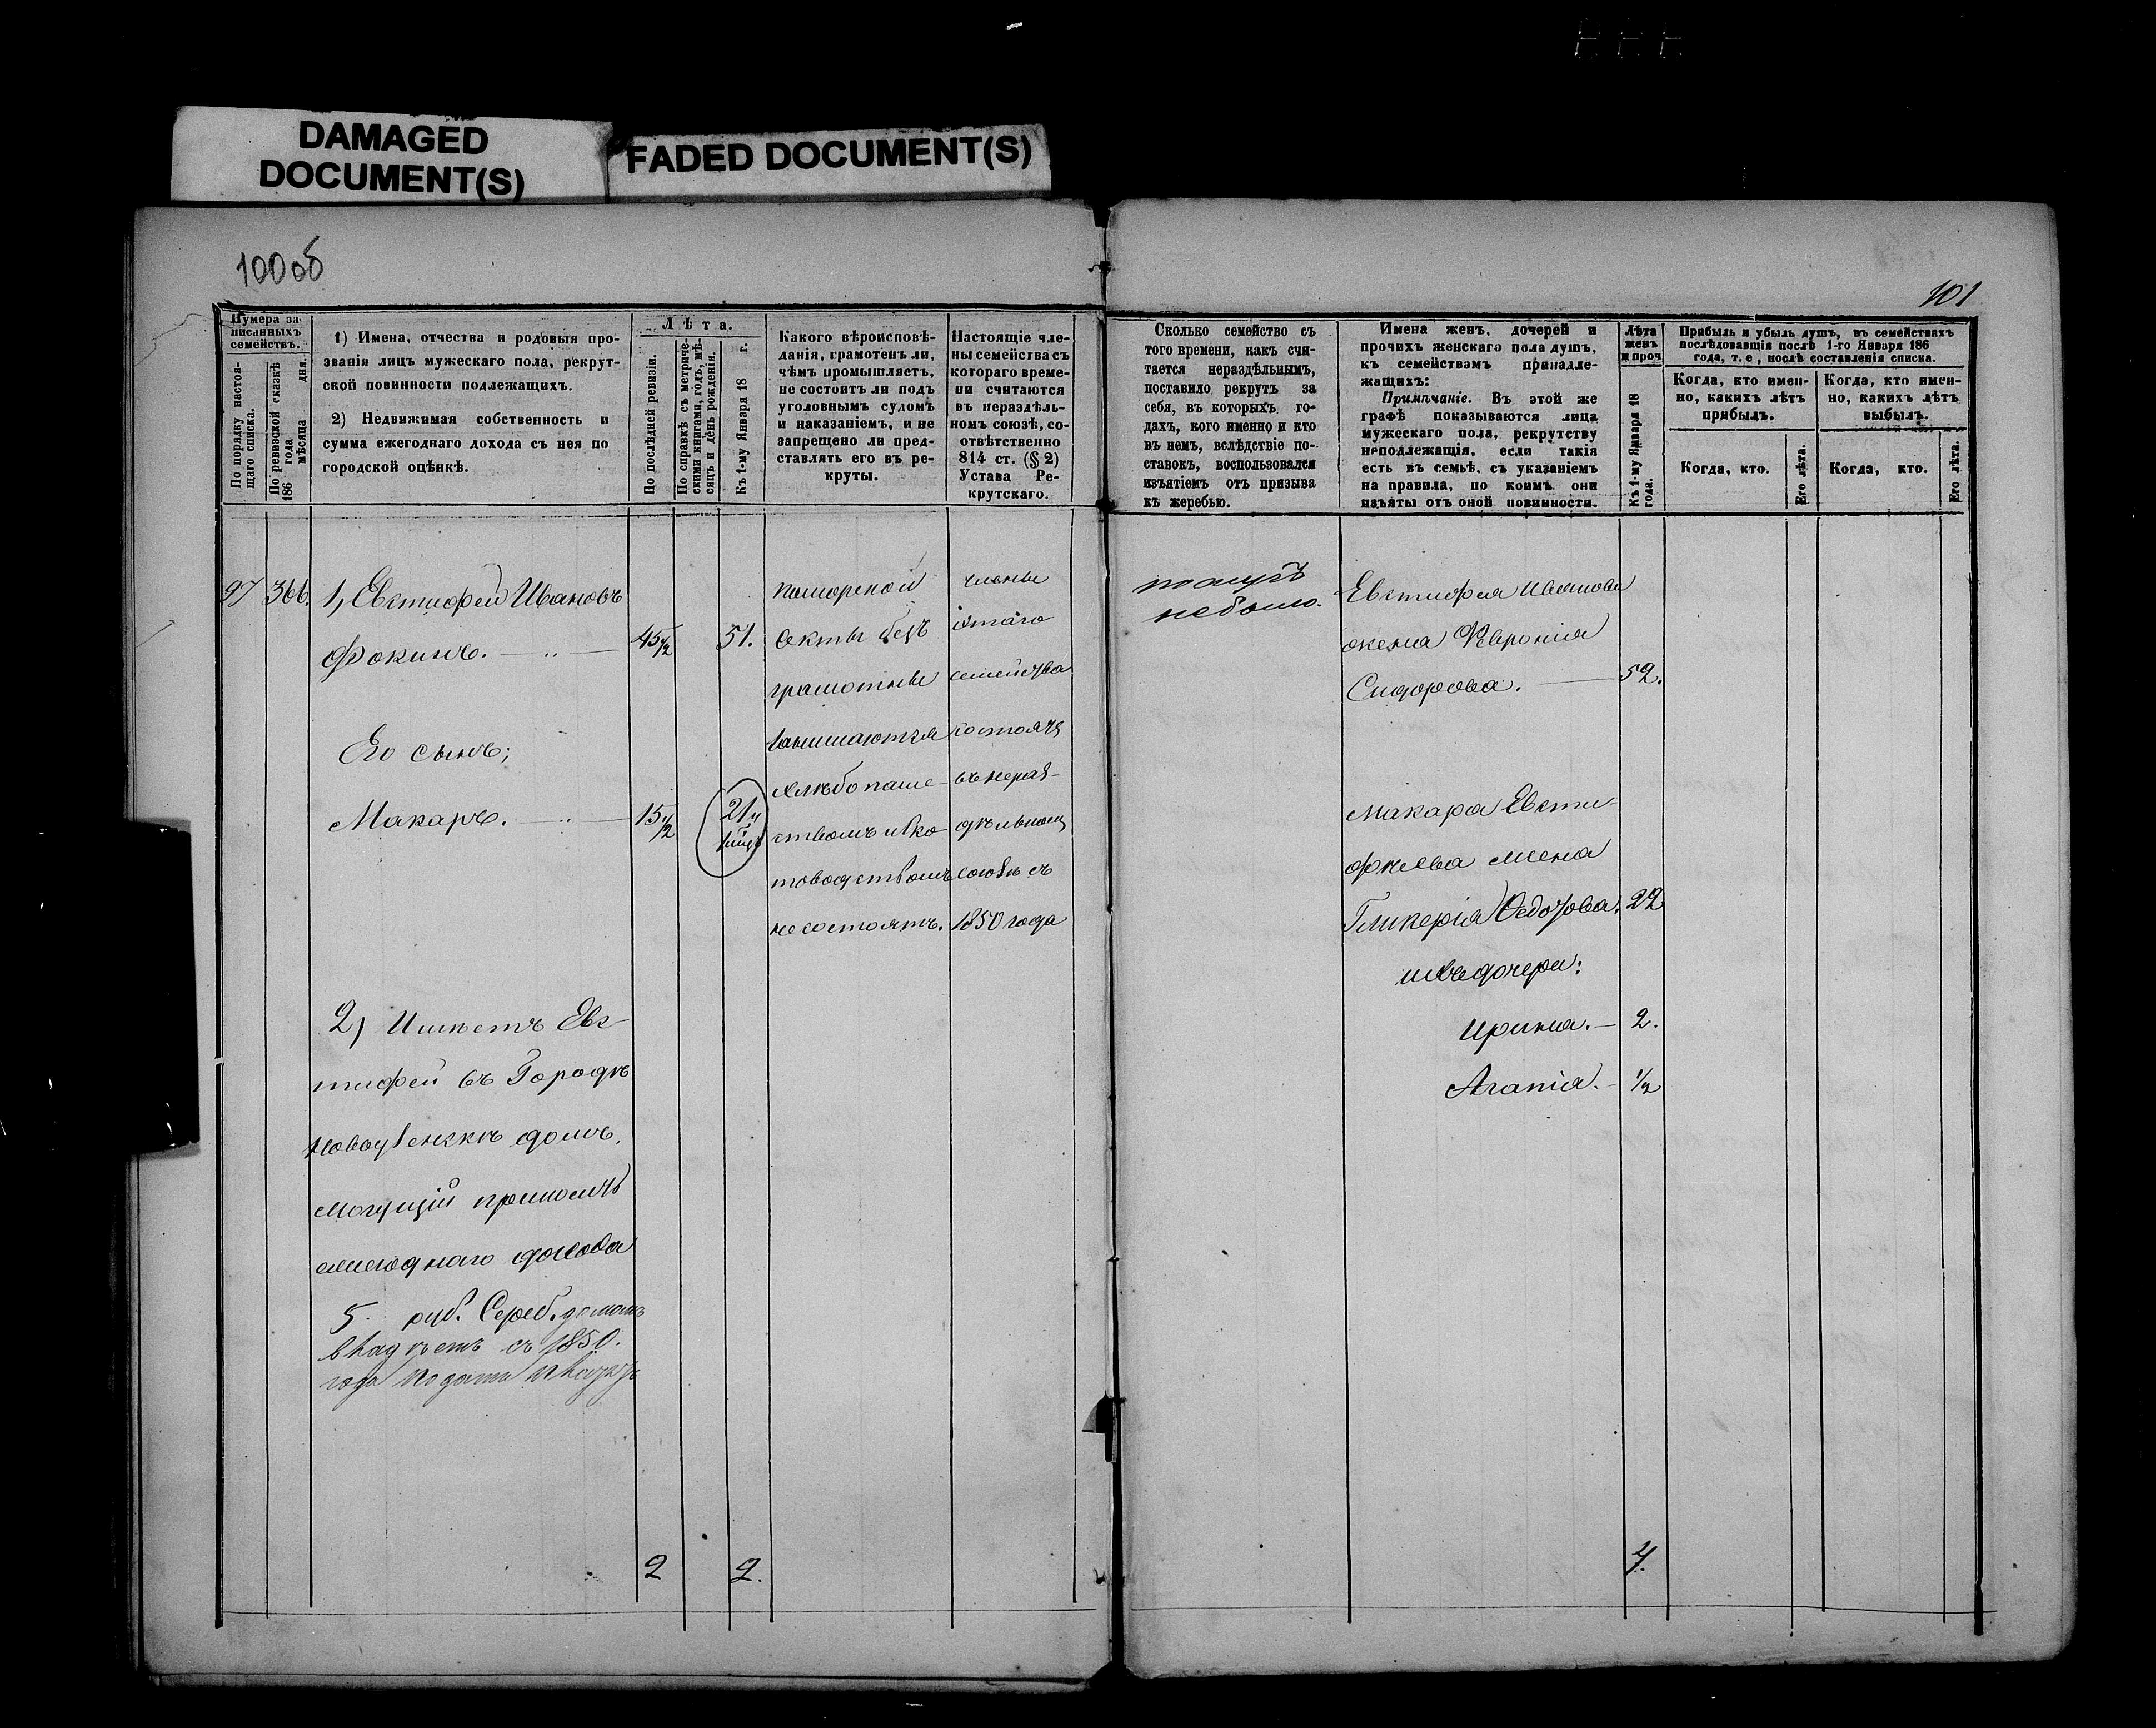 DAMAGED
DOCUMENT(S)
FADED DOCUMENT(S)
100об
101
Нумера за-
писанныхъ
семействъ.
По порядку настоя-
щаго списка.
По ревизской сказкѣ
186 года
мѣсяца дня.
1) Имена, отчества и родовыя про-
званія лицъ мужескаго пола, рекрут-
ской повинности подлежащихъ.
2) Недвижимая собственность и
сумма ежегоднаго дохода съ нея по
городской оцѣнкѣ.
Лѣта.
По послѣдней ревизіи.
По справкѣ съ метриче-
скими книгами, годъ, мѣ-
сяцъ и день рожденія.
Къ 1-му Января 18 г.
Какого вѣроисповѣ-
данія, грамотенъ ли,
чѣмъ промышляетъ,
не состоитъ ли подъ
уголовнымъ судомъ
и наказаніемъ, и не
запрещено ли пред-
ставлять его въ ре-
круты.
Настоящіе чле-
ны семейства съ
котораго време-
ни считаются
въ нераздѣль-
номъ союзѣ, со-
отвѣтственно
814 ст. (§ 2)
Устава Ре-
крутскаго.
97 366. 1, Евстифей Ивановъ
Фокинъ. 45½ 51.
Его сынъ;
Макаръ. 15½ 21
2) Имѣетъ Евс-
тифей въ Городѣ
домъ,
могущій приносить
ежегоднаго дохода
5 руб. Сереб. домомъ
владѣетъ съ 1850.
года
поморской
секты безъ
грамотные
занимаются
хлѣбопаше-
ствомъ и ско-
товодствомъ
не состоятъ.
члены
этаго
семейства
состоятъ
въ нераз-
дѣльномъ
союзѣ съ
1850 года
2 2.
Сколько семейство съ
того времени, какъ счи-
тается нераздѣльнымъ,
поставило рекрутъ за
себя, въ которыхъ го-
дахъ, кого именно и кто
въ немъ, вслѣдствіе по-
ставокъ, воспользовался
изъятіемъ отъ призыва
къ жеребью.
Имена женъ, дочерей и
прочихъ женскаго пола душъ,
къ семействамъ принадле-
жащихъ:
Примѣчаніе. Въ этой же
графѣ показываются лица
мужескаго пола, рекрутству
неподлежащія, если такія
есть въ семьѣ, съ указаніемъ
на правила, по коимъ они
изъяты отъ оной повинности.
Лѣта
женъ
и проч
Къ 1-му Января 18
года.
Прибыль и убыль душъ, въ семействахъ
послѣдовавшія послѣ 1-го Января 186
года, т. е, послѣ составленія списка.
Когда, кто имен-
но, какихъ лѣтъ
прибылъ.
Когда, кто имен-
но, какихъ лѣтъ
выбылъ.
Когда, кто.
Его лѣта.
Когда, кто.
Его лѣта.
небыло.
Евстифея Иванова
жена Феvронія
Сидорова. 52.
Макара Евсти-
фѣева жена
Гликерія Федотова. 22
ихъ дочери:
Ирина. 2.
Агапія. ½
4.